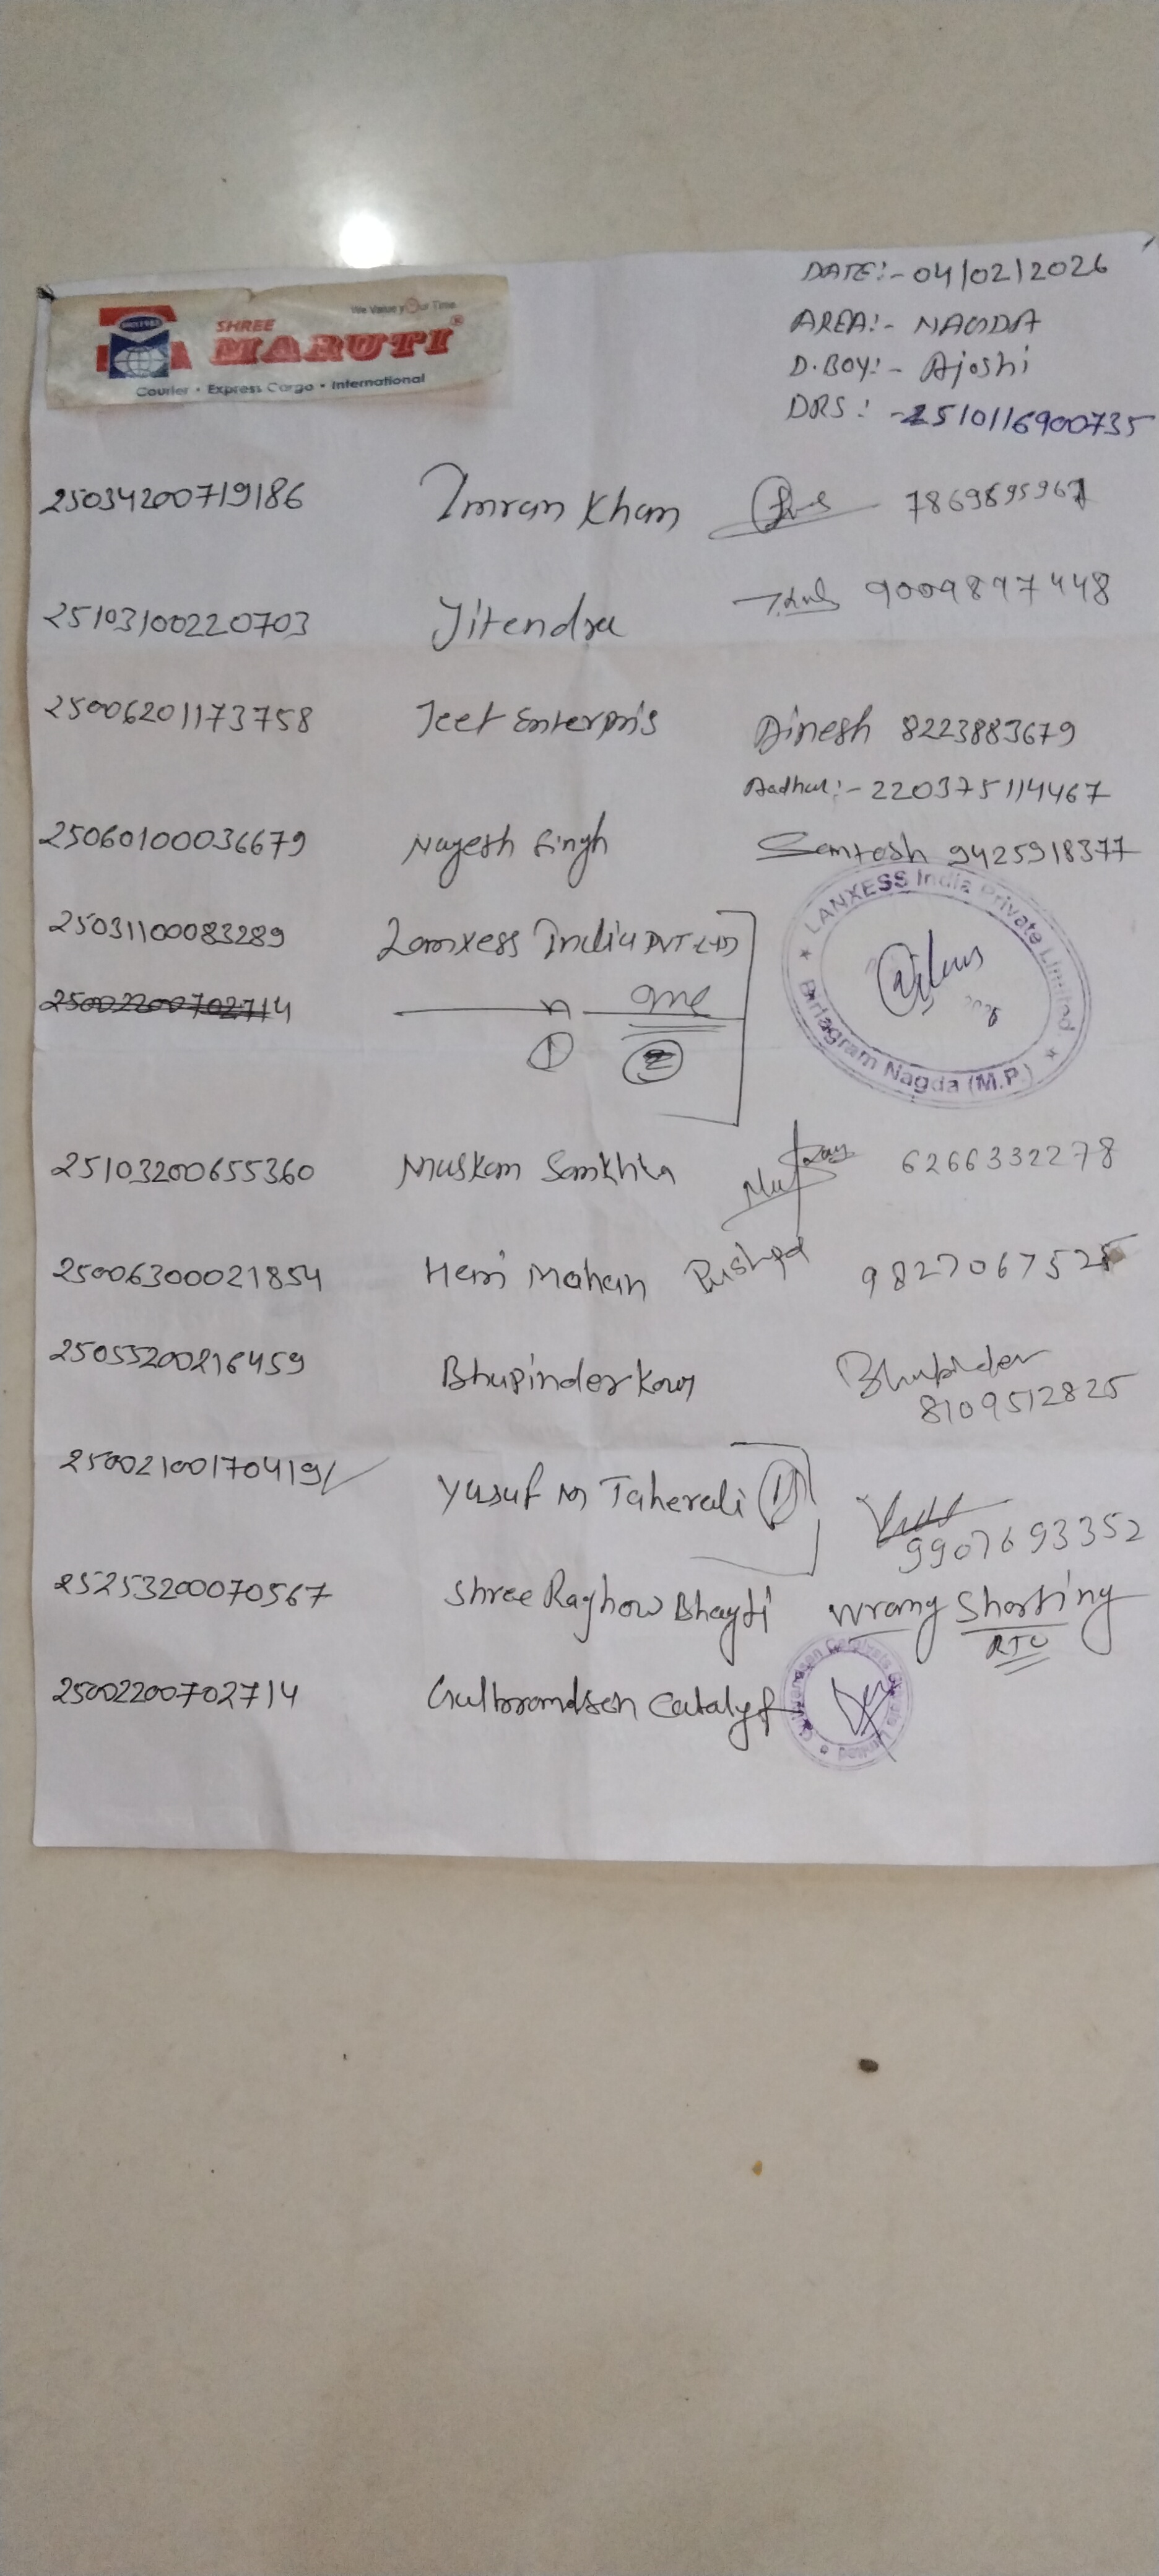 We Value your Time
SINCE 1985
SHREE
MARUTI
Courier • Express Cargo • International
DATE:- 04/02/2026
AREA:- NAGDA
D.BOY:- Ajoshi
DRS:- 2510116900735
25034200719186 Imran Khan 7869895967
25103100220703 Jitendra 9009897448
25006201173758 Jeet Enterpris Dinesh 8223883679
Aadhar:- 220375114467
25060100036679 Nagesh Singh Santosh 9425918377
25031100083289 Lanxess India PVT LTD
LANXESS India Private Limited
Birlagram Nagda (M.P.)
25002200702714 —n— one
1 2
25103200655360 Muskan Sankhla 6266332278
25006300021854 Hem Mohan Pushpa 9827067525
25055200216459 Bhupinder Kour Bhupinder
8109512825
25002100170419 Yusuf M Taherali 1
9907693352
25253200070567 Shree Raghow Bhagti Wrong Shorting
RTO
25002200702714 Gulbrandsen Catalyst